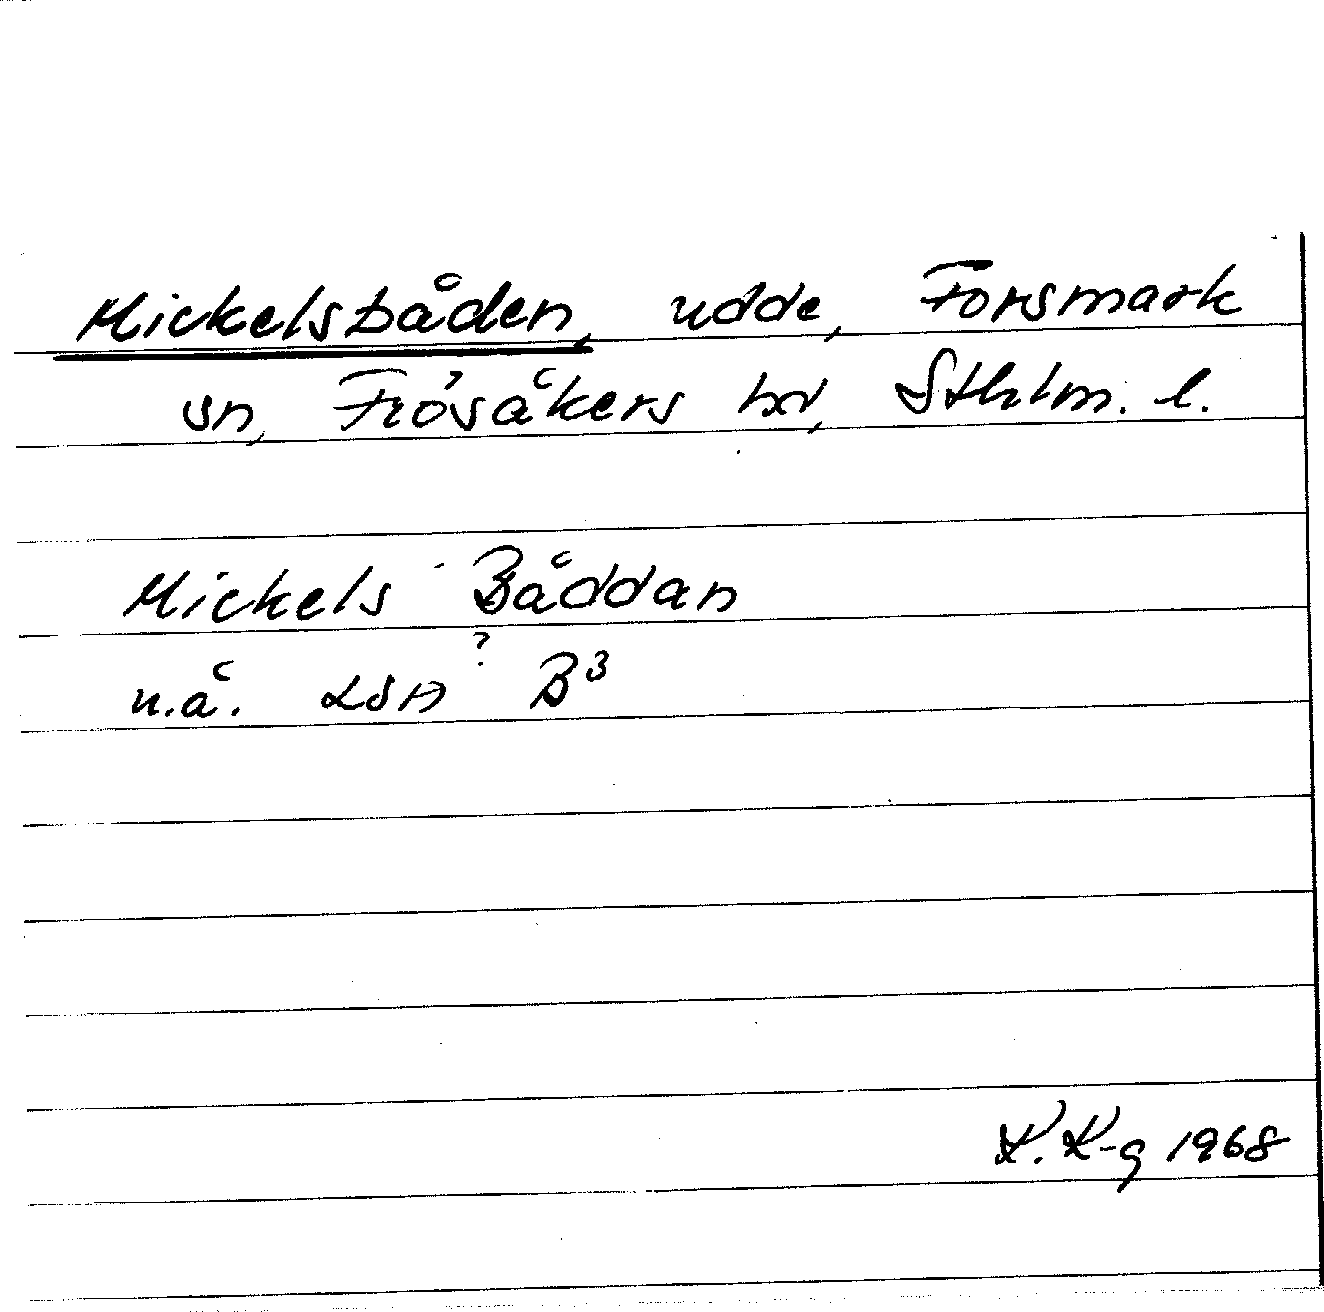 Mickelsbåden, udde, Forsmark
sn, Frösåkers hd, Sthlm. l.
Mickels Båddan
?
n.å. LSA B³
K. K-g 1968